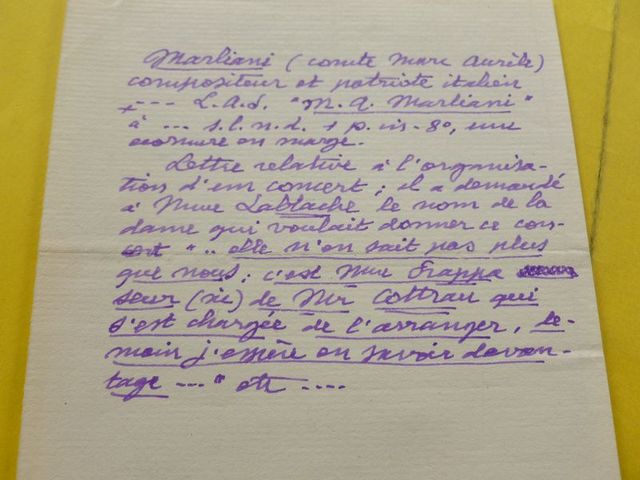 Marliani (comte Marc Aurèle)
compositeur et patriote italien
+ --- L.A.S. "M. A. Marliani"
à ... s.l.n.d. 1 p. in-8°, une
écornure en marge.
Lettre relative à l'organisa-
tion d'un concert ; il a demandé
à Mme Lablache le nom de la
dame qui voulait donner ce con-
cert ".. elle n'en sait pas plus
que nous ; c'est Mme Frappa
seur (sic) de Mr Cottrau qui
s'est chargée de l'arranger, de-
main j'espère en savoir davan-
tage ..." etc ....